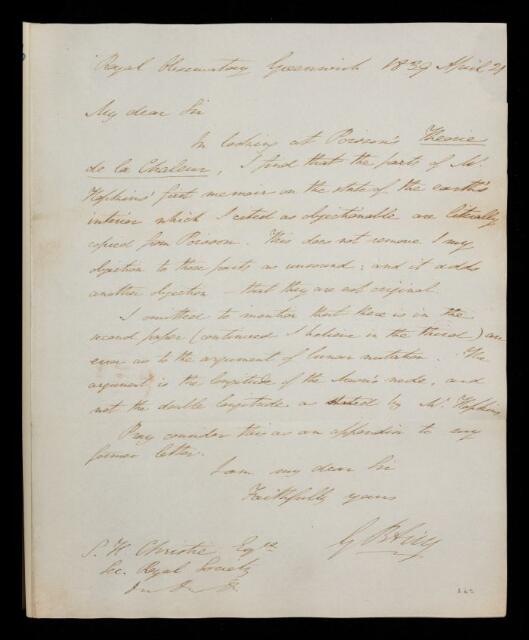 Royal Observatory Greenwich 1839 April 21
My dear Sir
In looking at Poisson's Theorie
de la Chaleur, I find that the parts of Mr
Hopkins' first memoir on the state of the earth's
interior which I cited as objectionable are literally
copied from Poisson. This does not remove my
objection to those parts as unsound: and it adds
another objection – that they are not original.
I omitted to mention that there is in the
second paper (continued I believe in the third) an
error as to the argument of lunar nutation. The
argument is the longitude of the Moon's node, and
not the double longitude as stated by Mr Hopkins
Pray consider this as an appendix to my
former letter.
I am my dear Sir
Faithfully yours
G B Airy
S. H. Christie Esqre
Sec. Royal Society